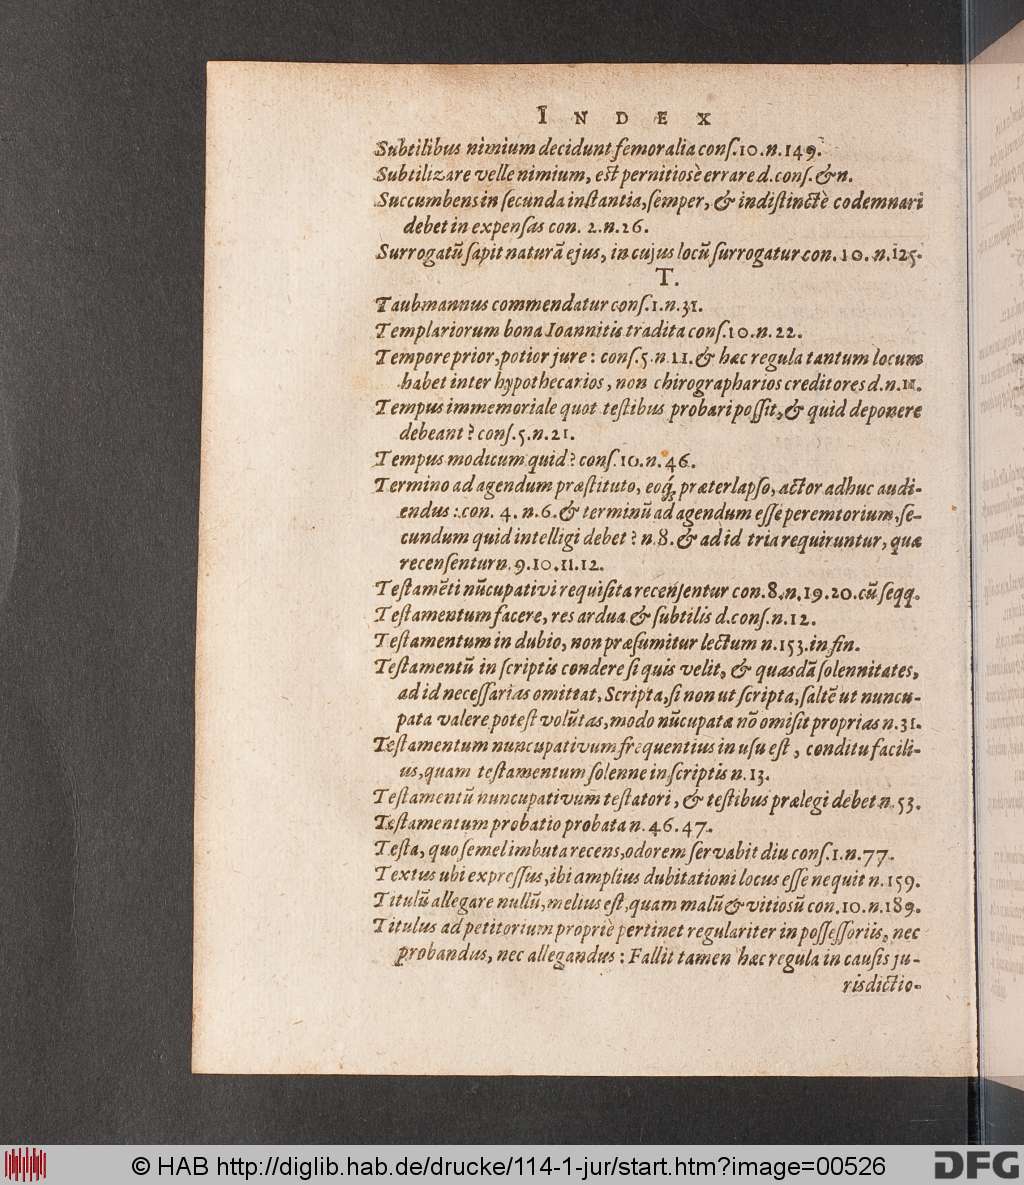 INDEX
Subtilibus nimium decidunt femoralia conſ.10.n.149.
Subtilizare velle nimium, est pernitiosè errare d.conſ.&n.
Succumbens in ſecunda instantia, ſemper, & indiſtinctè codemnari
debet in expenſas con. 2.n.26.
Surrogatũ ſapit naturã ejus, in cujus locũ ſurrogatur con. 10. n.125.
T.
Taubmannus commendatur conſ.1.n.31.
Templariorum bona Ioannitis tradita conſ.10.n.22.
Tempore prior, potior jure: conſ.5.n.11.& hæc regula tantum locum
habet inter hypothecarios, non chirographarios creditores d.n.11.
Tempus immemoriale quot teſtibus probari poſſit, & quid deponere
debeant? conſ.5.n.21.
Tempus modicum quid? conſ.10.n.46.
Termino ad agendum præſtituto, eoq́; præterlapſo, actor adhuc audi-
endus: con. 4. n.6.& terminũ ad agendum eſſe peremtorium, ſe-
cundum quid intelligi debet? n.8.& ad id tria requiruntur, quæ
recenſentur n. 9.10.11.12.
Teſtamẽti nũcupativi requiſita recenſentur con.8.n.19.20.cũ ſeqq.
Teſtamentum facere, res ardua & ſubtilis d.conſ.n.12.
Teſtamentum in dubio, non præſumitur lectum n.153.in fin.
Teſtamentũ in ſcriptis condere ſi quis velit, & quasdã ſolennitates,
ad id neceſſarias omittat, Scripta, ſi non ut ſcripta, ſaltẽ ut nuncu-
pata valere poteſt volũtas, modo nũcupata nõ omiſit proprias n.31.
Teſtamentum nuncupativum frequentius in uſu eſt, conditu facili-
us, quam teſtamentum ſolenne in ſcriptis n.13.
Teſtamentũ nuncupativum teſtatori, & teſtibus prælegi debet n.53.
Teſtamentum probatio probata n.46.47.
Teſta, quo ſemel imbuta recens, odorem ſervabit diu conſ.1.n.77.
Textus ubi expreſſus, ibi amplius dubitationi locus eſſe nequit n.159.
Titulũ allegare nullũ, melius eſt, quam malũ & vitioſũ con.10.n.189.
Titulus ad petitorium propriè pertinet regulariter in poſſeſſoriis, nec
probandus, nec allegandus: Fallit tamen hæc regula in cauſis ju-
risdictio-
© HAB http://diglib.hab.de/drucke/114-1-jur/start.htm?image=00526
DFG